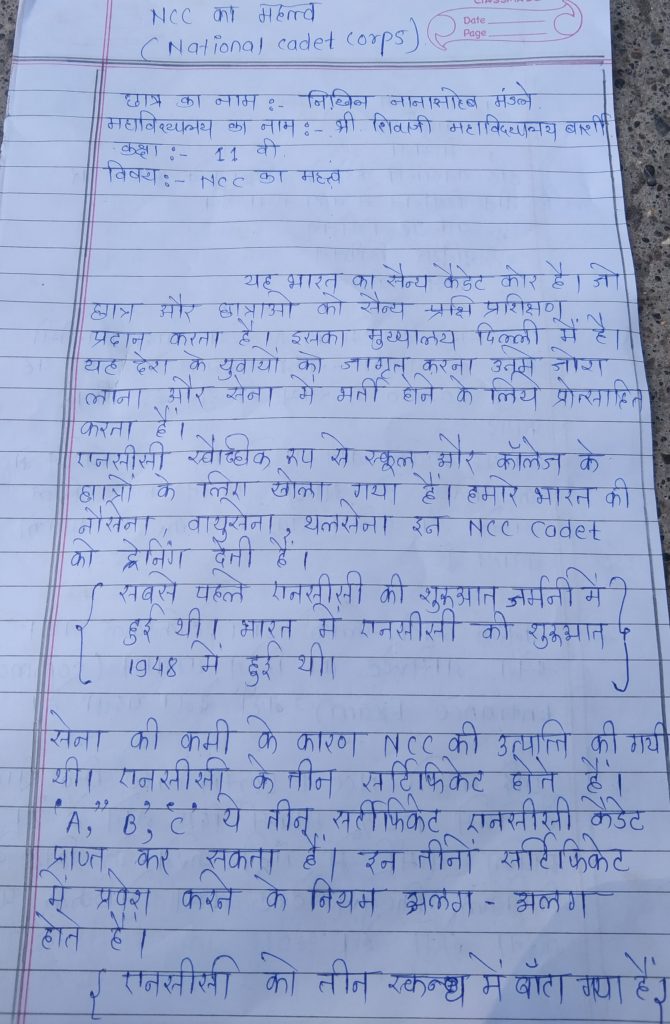 NCC का महत्व
(National cadet corps)
Date
Page
छात्र का नाम :- निखिल नानासाहेब
महाविद्यालय का नाम :- श्री शिवाजी महाविद्यालय बार्शी
कक्षा :- 11 वी.
विषय :- NCC का महत्व
यह भारत का सैन्य कैडेट कोर है। जो
छात्र और छात्राओ को सैन्य प्रशि प्रशिक्षण
प्रदान करता है। इसका मुख्यालय दिल्ली में है।
यह देश के युवायों को जागृत करना उनमे जोश
लाना और सेना में भर्ती होने के लिये प्रोत्साहित
करता हैं।
एनसीसी स्वैच्छिक रूप से स्कूल और कॉलेज के
छात्रों के लिए खोला गया हैं। हमारे भारत की
नौसेना, वायुसेना, थलसेना इन NCC Cadet
को ट्रेनिंग देती हैं।
{ सबसे पहले एनसीसी की शुरुआत जर्मनी में }
हुई थी। भारत में एनसीसी की शुरुआत
1948 में हुई थी।
सेना की कमी के कारण NCC की उत्पत्ति की गयी
थी। एनसीसी के तीन सर्टिफिकेट होते हैं।
'A,'' B,' 'C' ये तीन सर्टीफिकेट एनसीसी कैडेट
प्राप्त कर सकता हैं। इन तीनों सर्टिफिकेट
में प्रवेश करने के नियम अलग - अलग
होते हैं।
{ एनसीसी को तीन स्कन्ध में बाँटा गया हैं }